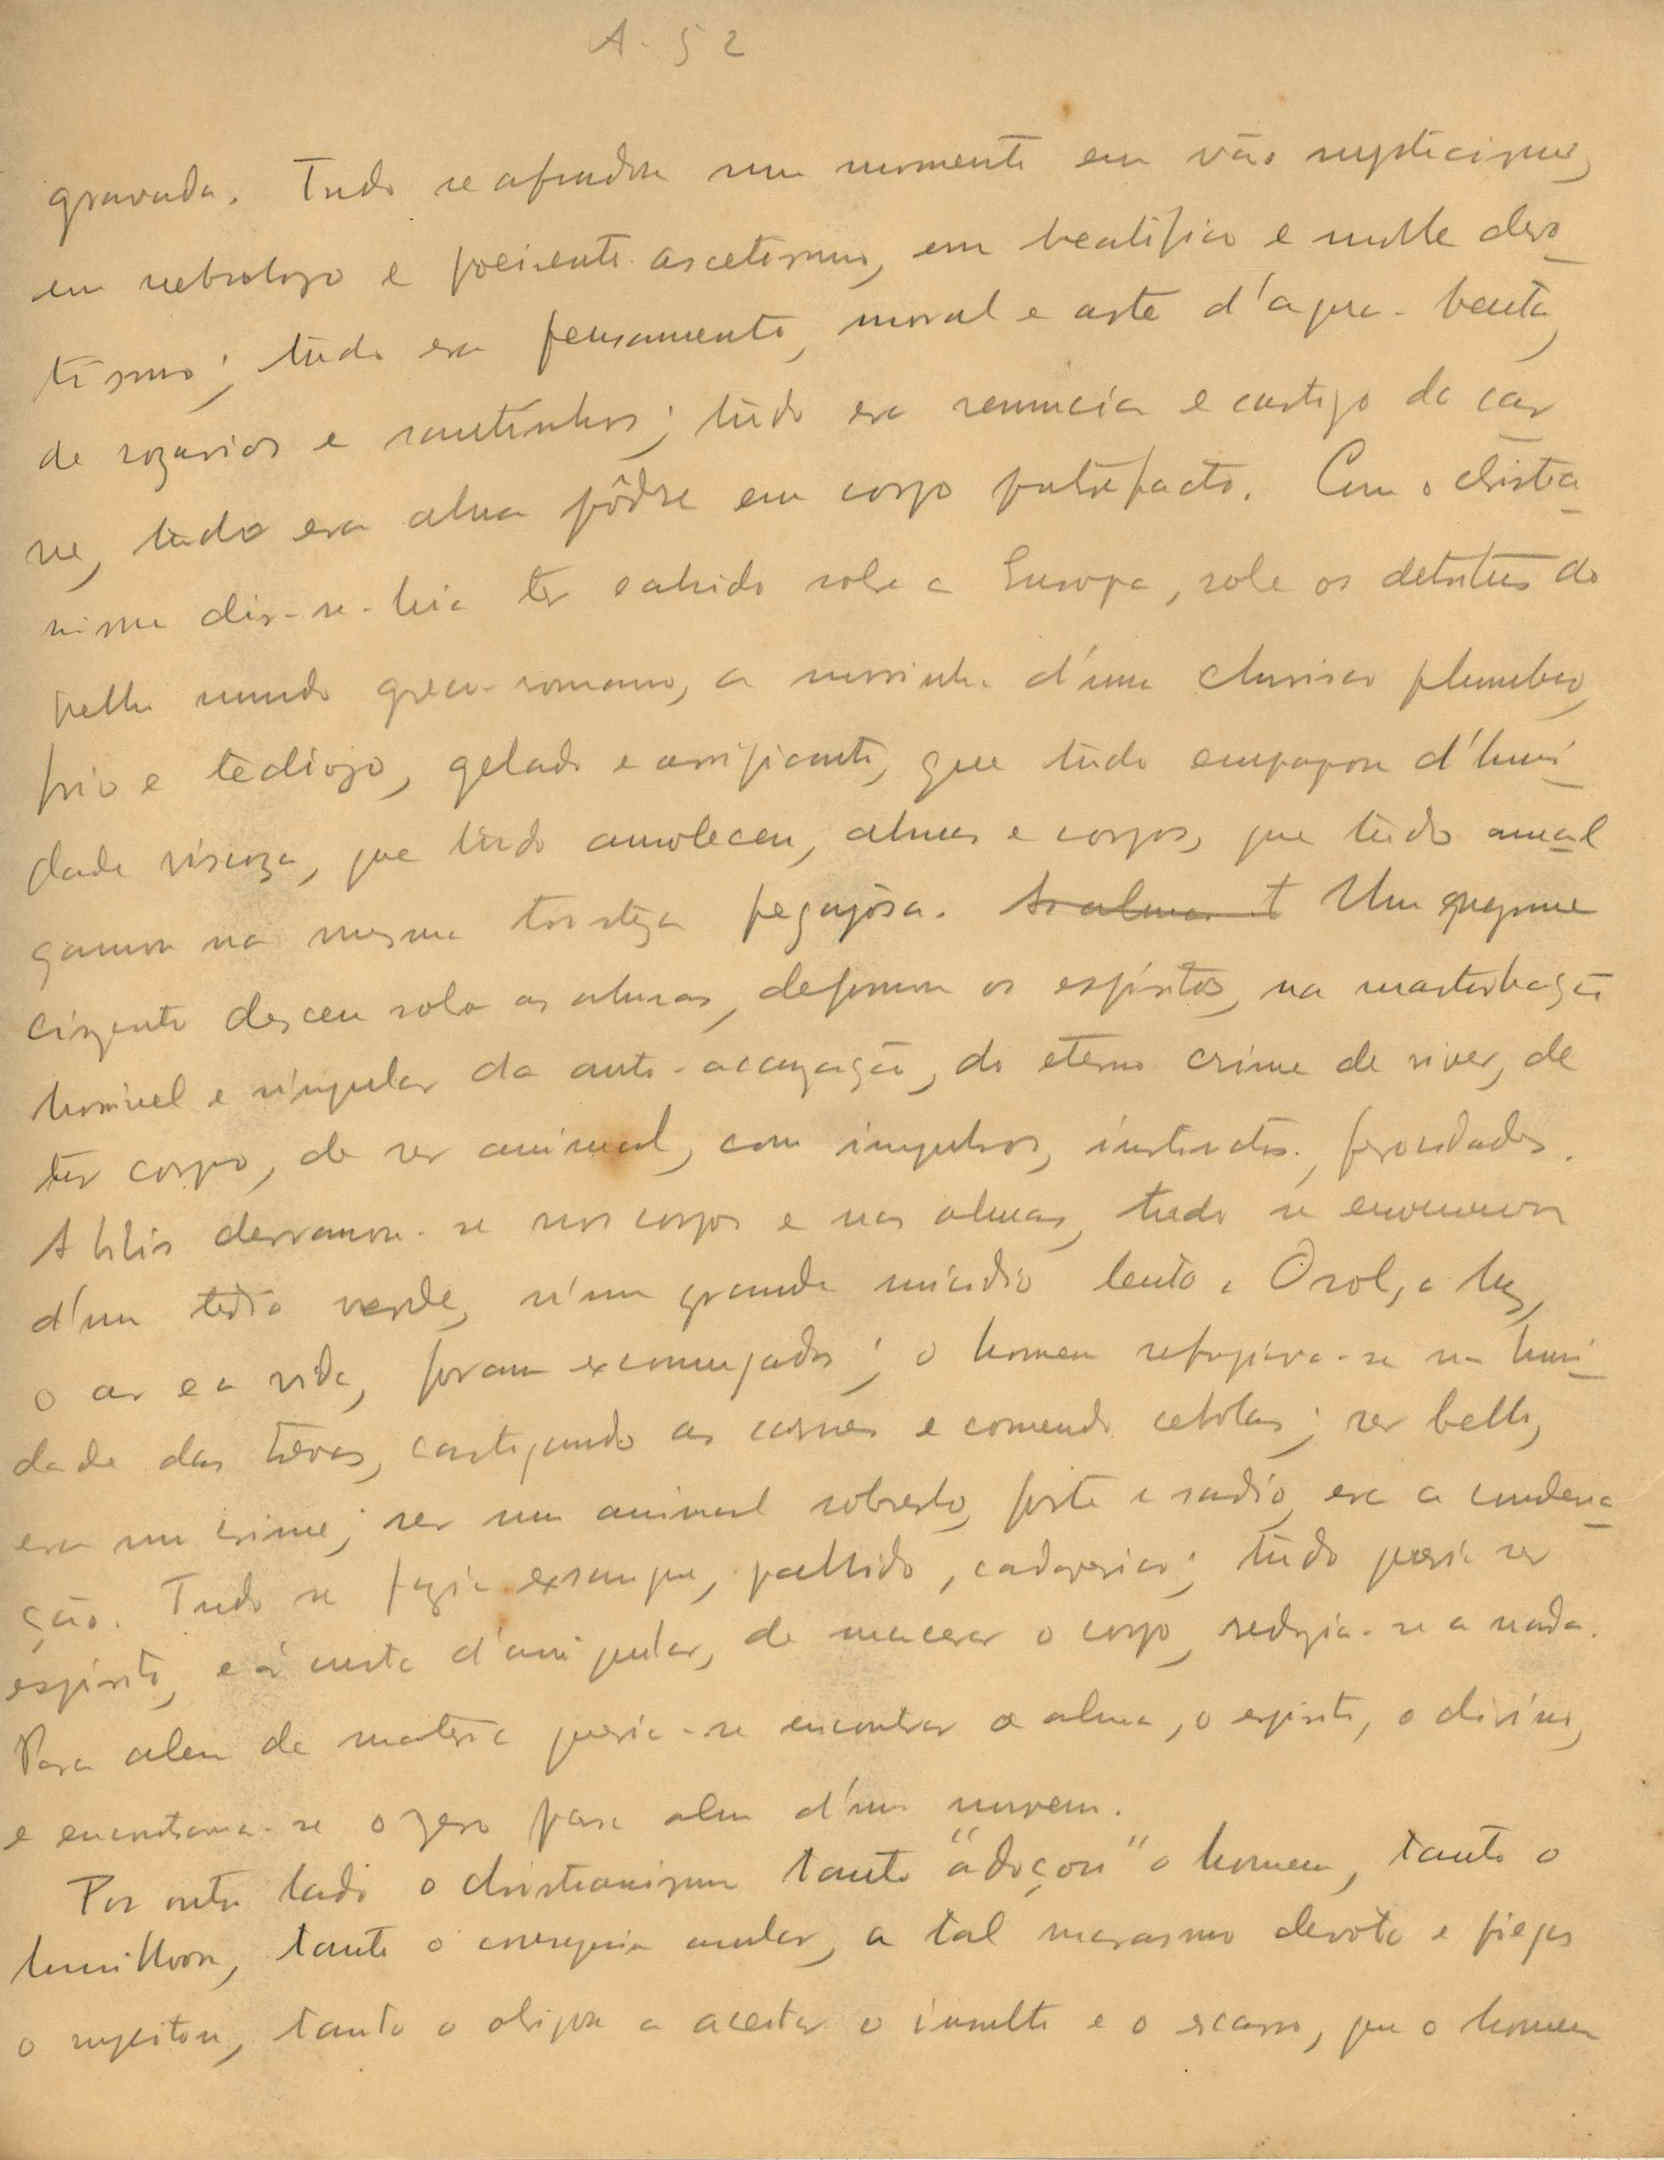 A. 52
gravada. Tudo se afundou num momento em vão mysticismo,
em nebulozo e poeirento ascetismo, em beatifico e molle devo
tismo; tudo era pensamento, moral e arte d'agua-benta,
de rozarios e santinhos; tudo era renuncia e castigo da car
ne, tudo era alma pôdre em corpo putrefacto. Com o christia
nismo dir-se-hia ter cahido sobre a Europa, sobre os detritus do
velho mundo greco-romano, a morrinha d'um chuvisco plumbeo,
frio e tediozo, gelado e arripiante, que tudo empapou d'humi
dade viscoza, que tudo amoleceu, almas e corpos, que tudo amal
gamou na mesma tristeza pegajósa. As almas t Um
cinzento desceu sobre as almas, deformou os espiritos, na masturbação
horrivel e singular da auto-accuzação, do eterno crime de viver, de
ter corpo, de ser animal, com impulsos, instinctos, ferocidades.
A bilis derramou-se nos corpos e nas almas, tudo se envenenou
d'um tedio verde, n'um grande suicidio lento. O sol, a luz,
o ar e a vida, foram excomungados; o homem refugiava-se na humi
dade das trevas, castigando as carnes e comendo cebolas; ser bello,
era um crime; ser um animal robusto, forte e sadio, era a condena
ção. Tudo se fazia exsangue, pallido, cadaverico; tudo queria ser
espirito, e á custa d'amputar, de macerar o corpo, reduzia-se a nada.
Para alem da materia queria-se encontrar a alma, o espirito, o divino,
e encontrava-se o zero para alem d'uma nuvem.
Por outro lado o christianismo tanto "adoçou" o homem, tanto o
humilhou, tanto o conseguiu anular, a tal marasmo devoto e piegas
o sujeitou, tanto o obrigou a aceitar o insulto e o escarro, que o homem